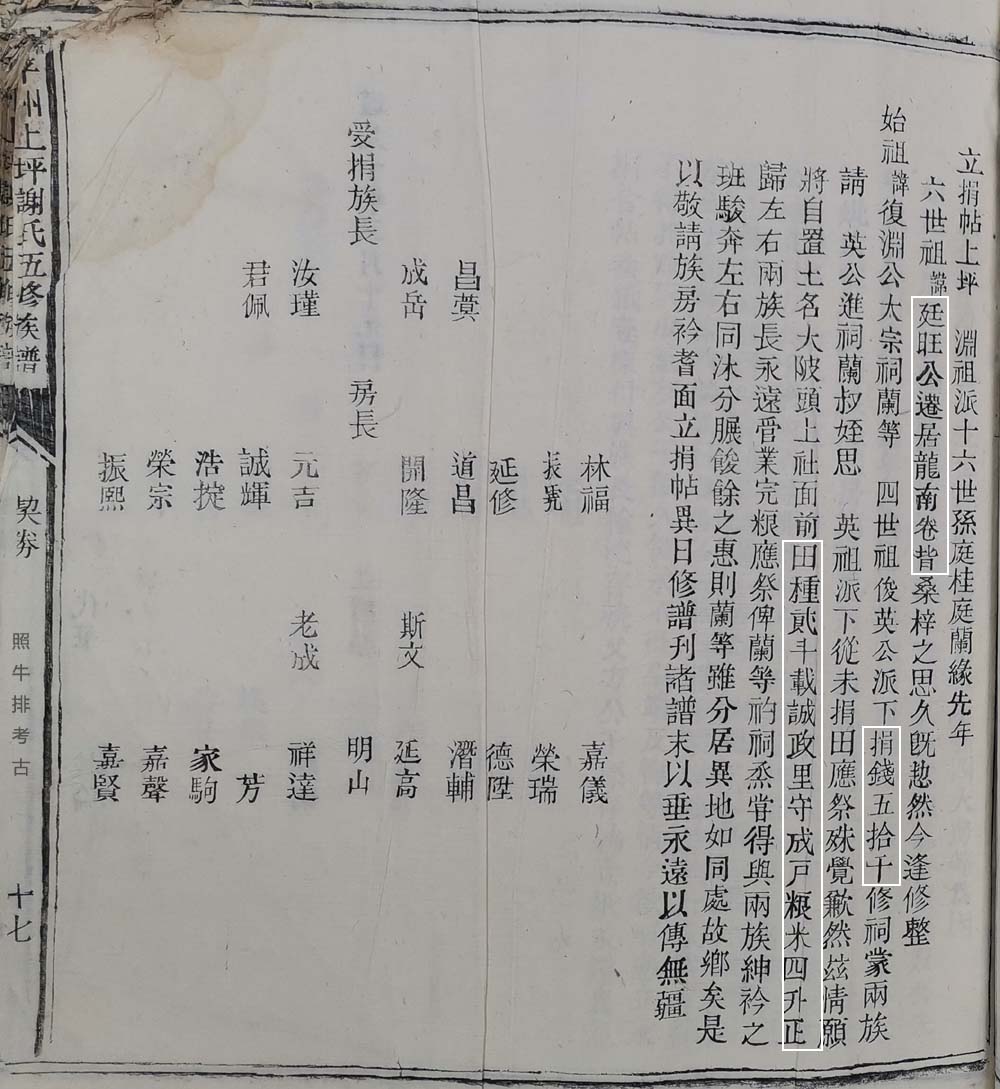 立捐帖上坪　淵祖派十六世孫庭桂庭蘭緣先年
六世祖諱廷旺公遷居龍南卷㫮桑梓之思久旣愸然今逢修整
始祖諱復淵公太宗祠蘭等　四世祖俊英公派下捐錢五拾千修祠蒙兩族
請　英公進祠蘭叔姪思　英祖派下從未捐田應祭殊覺歉然茲情願
將自置土名大陂頭上社面前田種貳斗載誠政里守成戸粮米四升正
歸左右兩族長永遠管業完粮應祭俾蘭等礿祠烝嘗得與兩族紳衿之
班駿奔左右同沐分胙餕餘之惠則蘭等雖分居異地如同處故鄉矣是
以敬請族房衿耆面立捐帖異日修譜刊諸譜末以垂永遠以傳無疆
林福　嘉儀
榮瑞
延修　德陞
昌蓂　道昌　潛輔
成岳　開隆　斯文　延高
受捐族長　房長　明山
汝瑾　元吉　老成　祥達
君佩　誠輝　芳
浩掟　家駒
榮宗　嘉聲
振熙　嘉賢
上坪謝氏五修族譜
契券
照牛排考古
十七